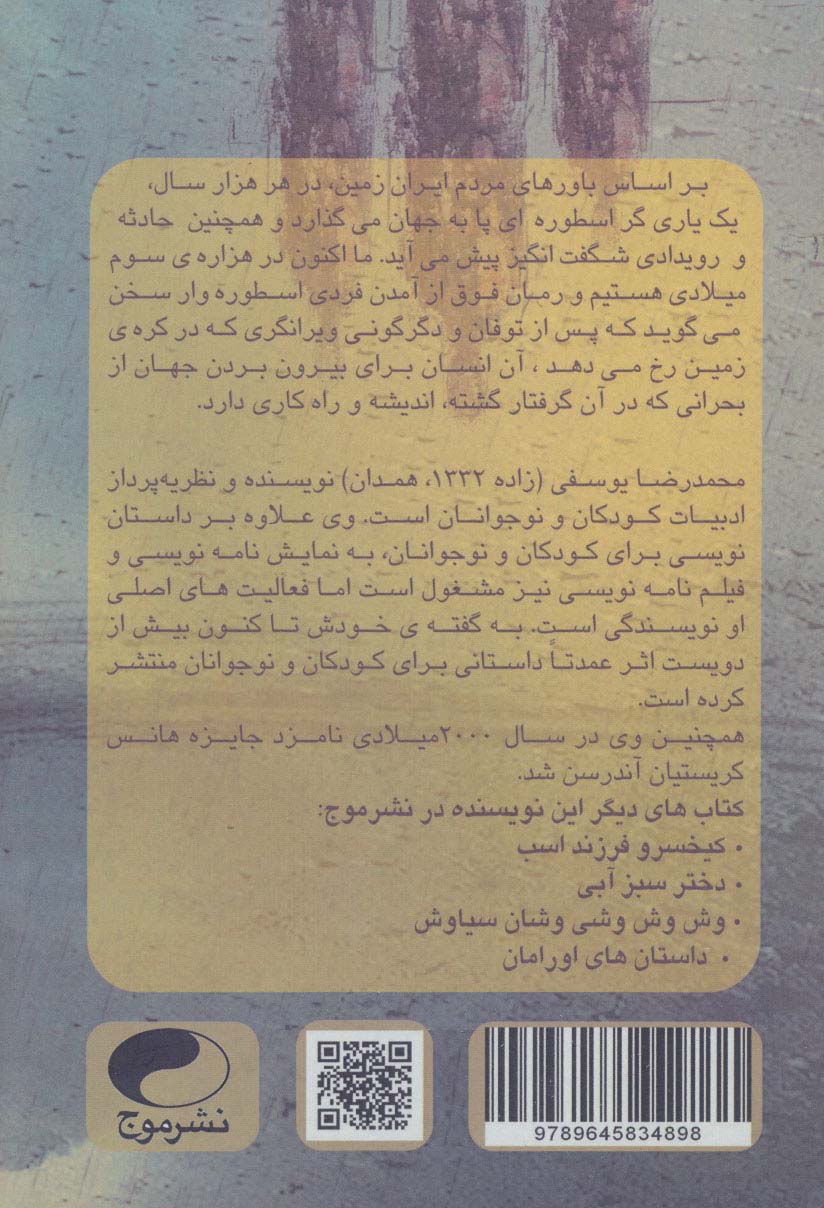 بر اساس باورهای مردم ایران زمین، در هر هزار سال،
یک یاری گر اسطوره ای پا به جهان می گذارد و همچنین حادثه
و رویدادی شگفت انگیز پیش می آید. ما اکنون در هزاره ی سوم
میلادی هستیم و رمان فوق از آمدن فردی اسطوره وار سخن
می گوید که پس از توفان و دگرگونی ویرانگری که در کره ی
زمین رخ می دهد ، آن انسان برای بیرون بردن جهان از
بحرانی که در آن گرفتار گشته، اندیشه و راه کاری دارد.
محمدرضا یوسفی (زاده ۱۳۳۲، همدان) نویسنده و نظریه‌پرداز
ادبیات کودکان و نوجوانان است. وی علاوه بر داستان
نویسی برای کودکان و نوجوانان، به نمایش نامه نویسی و
فیلم نامه نویسی نیز مشغول است اما فعالیت های اصلی
او نویسندگی است. به گفته ی خودش تا کنون بیش از
دویست اثر عمدتاً داستانی برای کودکان و نوجوانان منتشر
کرده است.
همچنین وی در سال ۲۰۰۰میلادی نامزد جایزه هانس
کریستیان آندرسن شد.
کتاب های دیگر این نویسنده در نشرموج:
• کیخسرو فرزند اسب
• دختر سبز آبی
• وش وش وشی وشان سیاوش
• داستان های اورامان
نشرموج
9789645834898